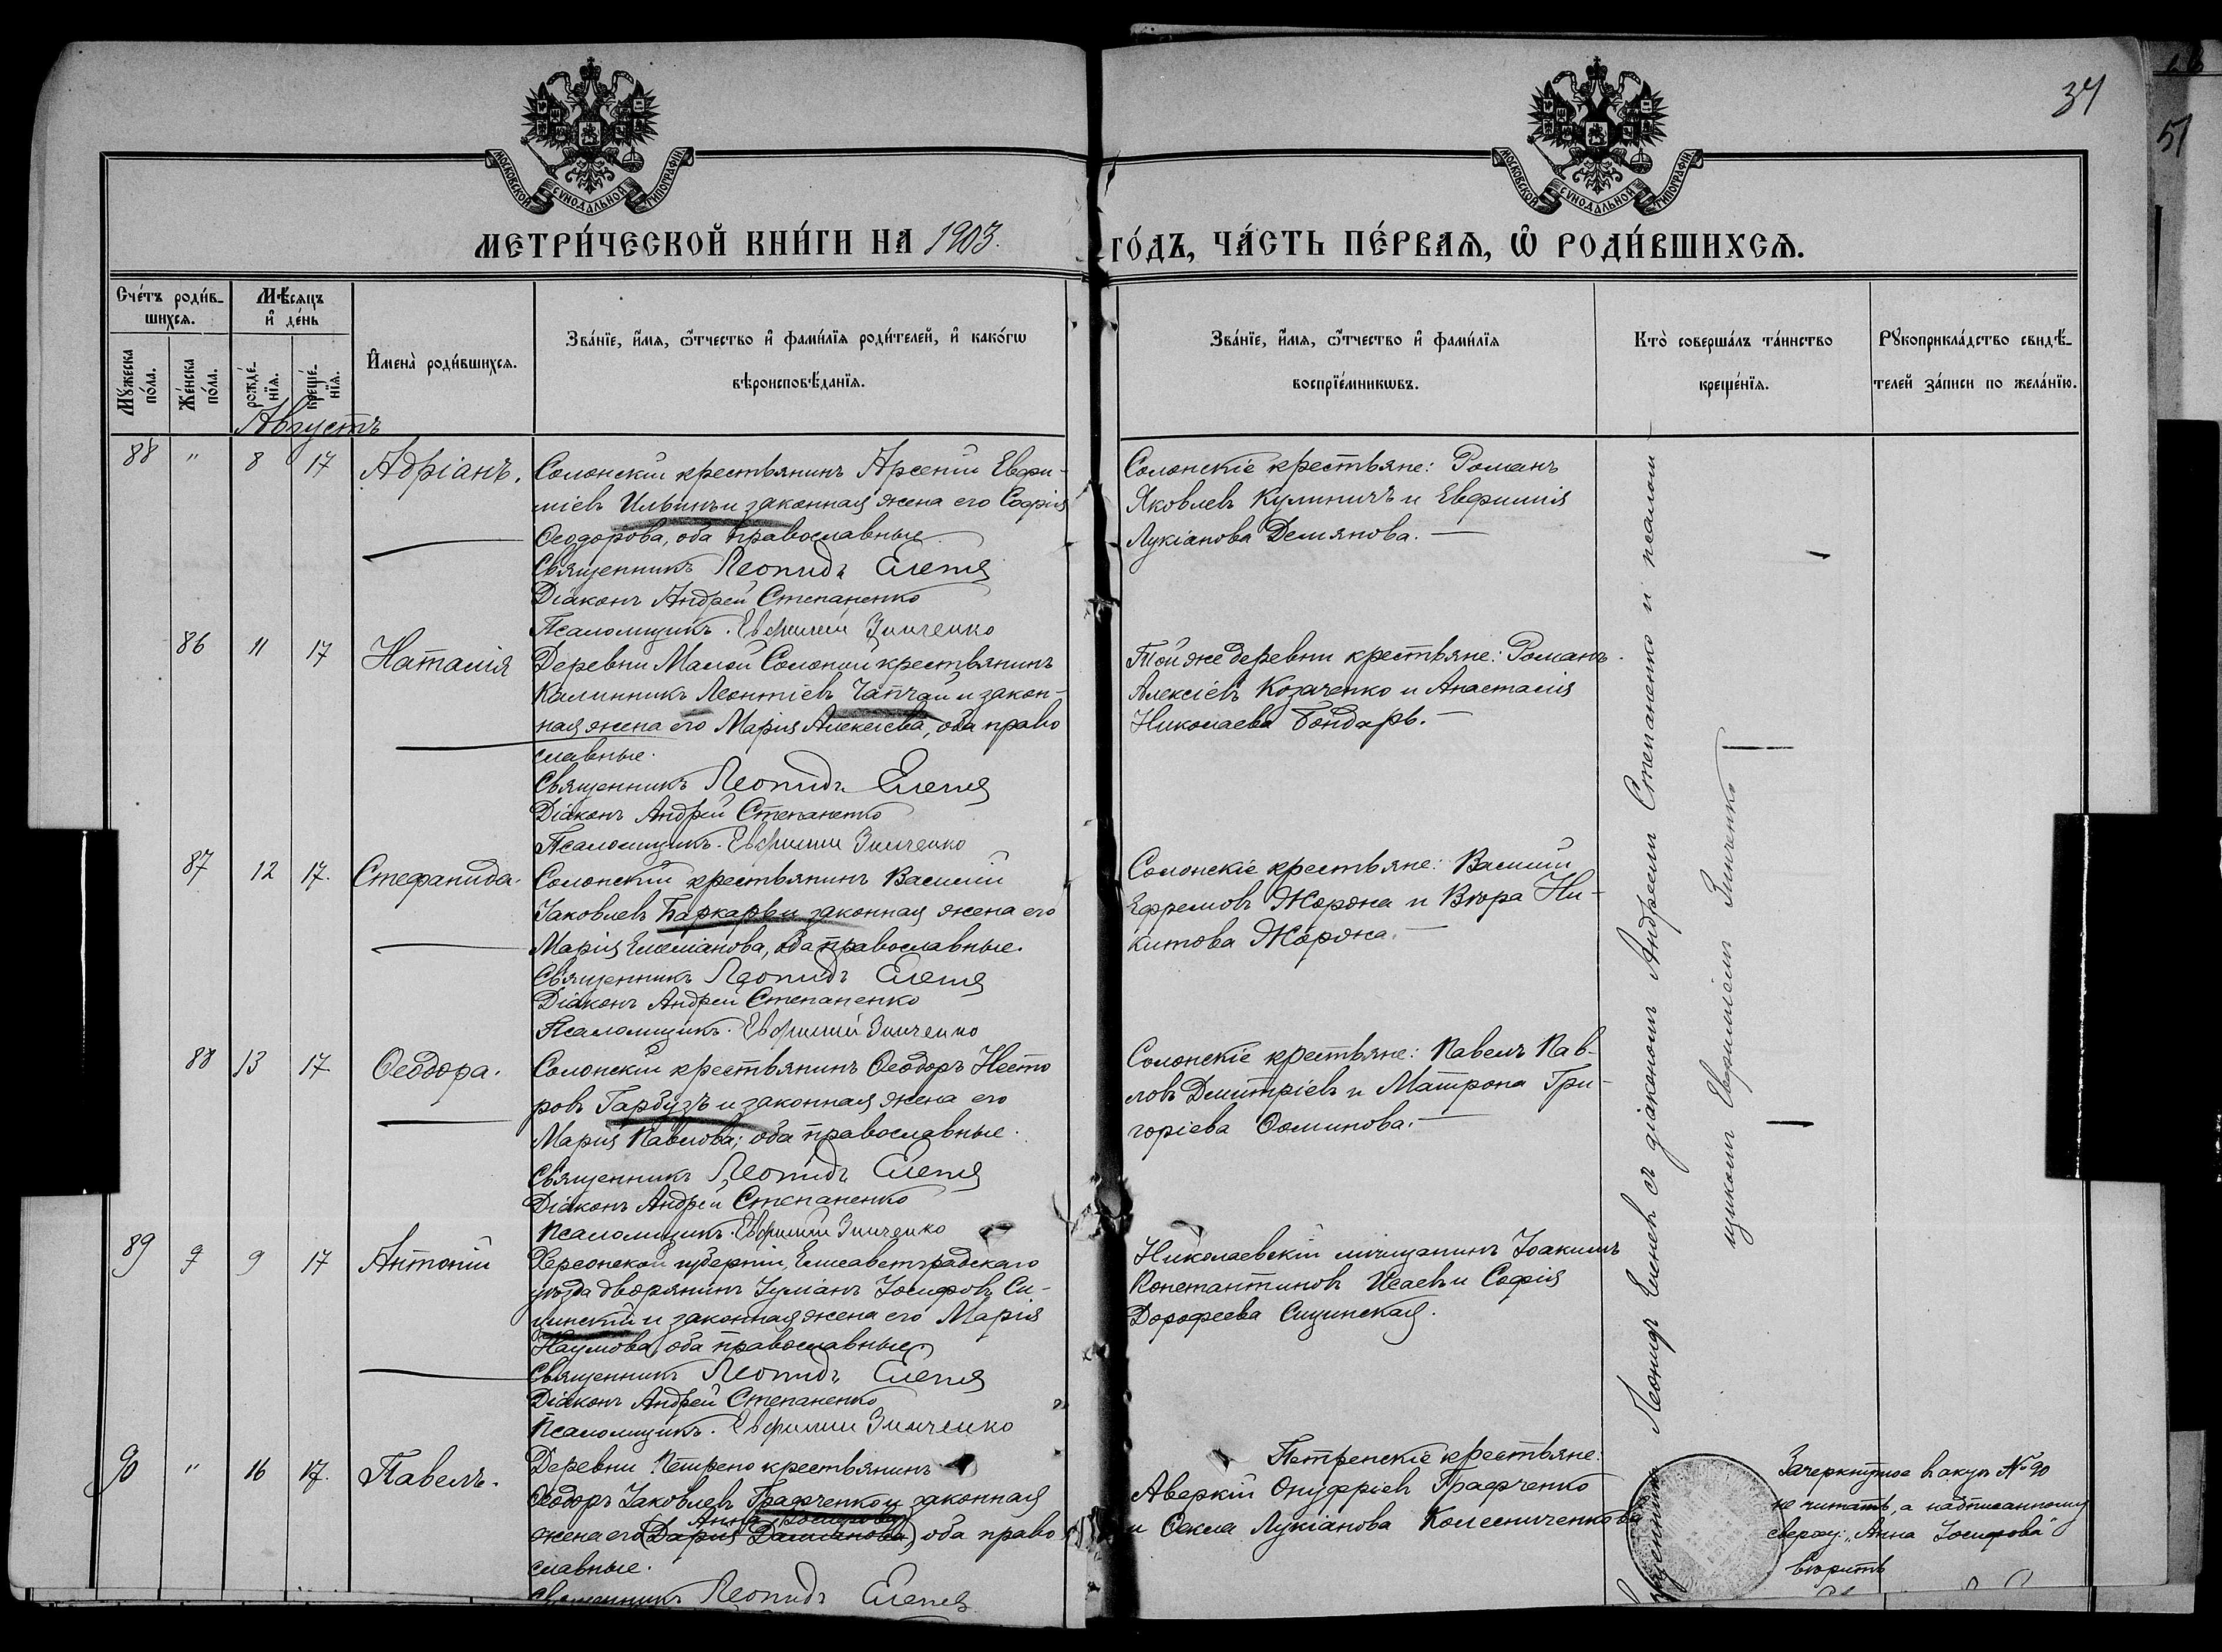 34
51
МОСКОВСКОЙ СѴНОДАЛЬНОЙ ТИПОГРАФІИ
МОСКОВСКОЙ СѴНОДАЛЬНОЙ ТИПОГРАФІИ
МЕТРИ́ЧЕСКОЙ КНИ́ГИ НА 1903.
ГО́ДЪ, ЧА́СТЬ ПЕ́РВАѦ, Ѡ҆ РОДИ́ВШИХСѦ.
Сче́тъ роди́в-
шихсѧ.
Мꙋжеска
по́ла.
Же́нска
по́ла.
Мѣ́сѧцъ
и҆ де́нь
рожде́-
нїѧ.
креще́-
нїѧ.
И҆мена̀ роди́вшихсѧ.
Зва́нїе, и҆́мѧ, ѻ҆́тчество и҆ фами́лїѧ роди́телей, и҆ како́гѡ
вѣроисповѣ́данїѧ.
Зва́нїе, и҆́мѧ, ѻ҆́тчество и҆ фами́лїѧ
воспрїе́мникѡвъ.
Кто̀ соверша́лъ та́инство
креще́нїѧ.
Рꙋкоприкла́дство свидѣ́-
телей за́писи по жела́нїю.
Августъ
88 " 8 17 Адріанъ. Солонскій крестьянинъ Арсеній Евфи-
міевъ Ильинъ и законная жена его Софія
Ѳеодорова, оба православные.
Священникъ Леонидъ
Діаконъ Андрей Степаненко
Псаломщикъ. Евфимій Зинченко
Солонскіе крестьяне: Романъ
Яковлевъ Кулиничъ и Евфимія
Лукіанова Демянова. —
86 11 17 Наталія Деревни Малой Солоной крестьянинъ
Калинникъ Леонтіевъ Чапчай и закон-
ная жена его Марія Алексіева, оба право
славные.
Священникъ Леонидъ
Діаконъ Андрей Степаненко
Псаломщикъ. Евфимій Зинченко
Той же деревни крестьяне: Романъ
Алексіевъ Козаченко и Анастасія
Николаева Бондарь. —
87 12 17. Стефанида. Солонскій крестьянинъ Василій
Іаковлевъ Баркарь и законная жена его
Марія Емеліанова, оба православные.
Священникъ Леонидъ
Діаконъ Андрей Степаненко
Псаломщикъ. Евфимій Зинченко
Солонскіе крестьяне: Василій
Ефремовъ Жоржа и Вѣра Ни-
китова Жоржа. —
88 13 17. Ѳеодора. Солонскій крестьянинъ Ѳеодоръ Несто
ровъ Гарбузъ и законная жена его
Марія Павлова; оба православные.
Священникъ Леонидъ
Діаконъ Андрей Степаненко
Псаломщикъ. Евфимій Зинченко
Солонскіе крестьяне: Павелъ Пав-
ловъ Димитріевъ и Матрона Гри-
горіева Ѳоминова. —
89 9 17 Антоній Херсонской губерніи, Елисаветградскаго
уѣзда дворянинъ Іуліанъ Іосифовъ Си-
цинскій и законная жена его Марія
Наумова, оба православные.
Священникъ Леонидъ
Діаконъ Андрей Степаненко
Псаломщикъ. Евфимій Зинченко
Николаевскій мѣщанинъ Іоакимъ
Константиновъ Исаевъ и Софія
Дорофеева Сицинская.
90 " 16 17. Павелъ. Деревни Петрено крестьянинъ
Ѳеодоръ Іаковлевъ Графченко и законная
Анна Іосифова
жена его (Дарія Даміанова) оба право
славные.
Священникъ Леонидъ
Петренскіе крестьяне:
Аверкій Онуфріевъ Графченко
и Ѳекла Лукіанова Колесниченкова
Священникъ Леонидъ съ діакономъ Андреемъ Степаненко и псалом
щикомъ Евфиміемъ Зинченко
Зачеркнутое въ актѣ № 90
не читать, а надписанному
сверху: „Анна Іосифова"
вѣрить